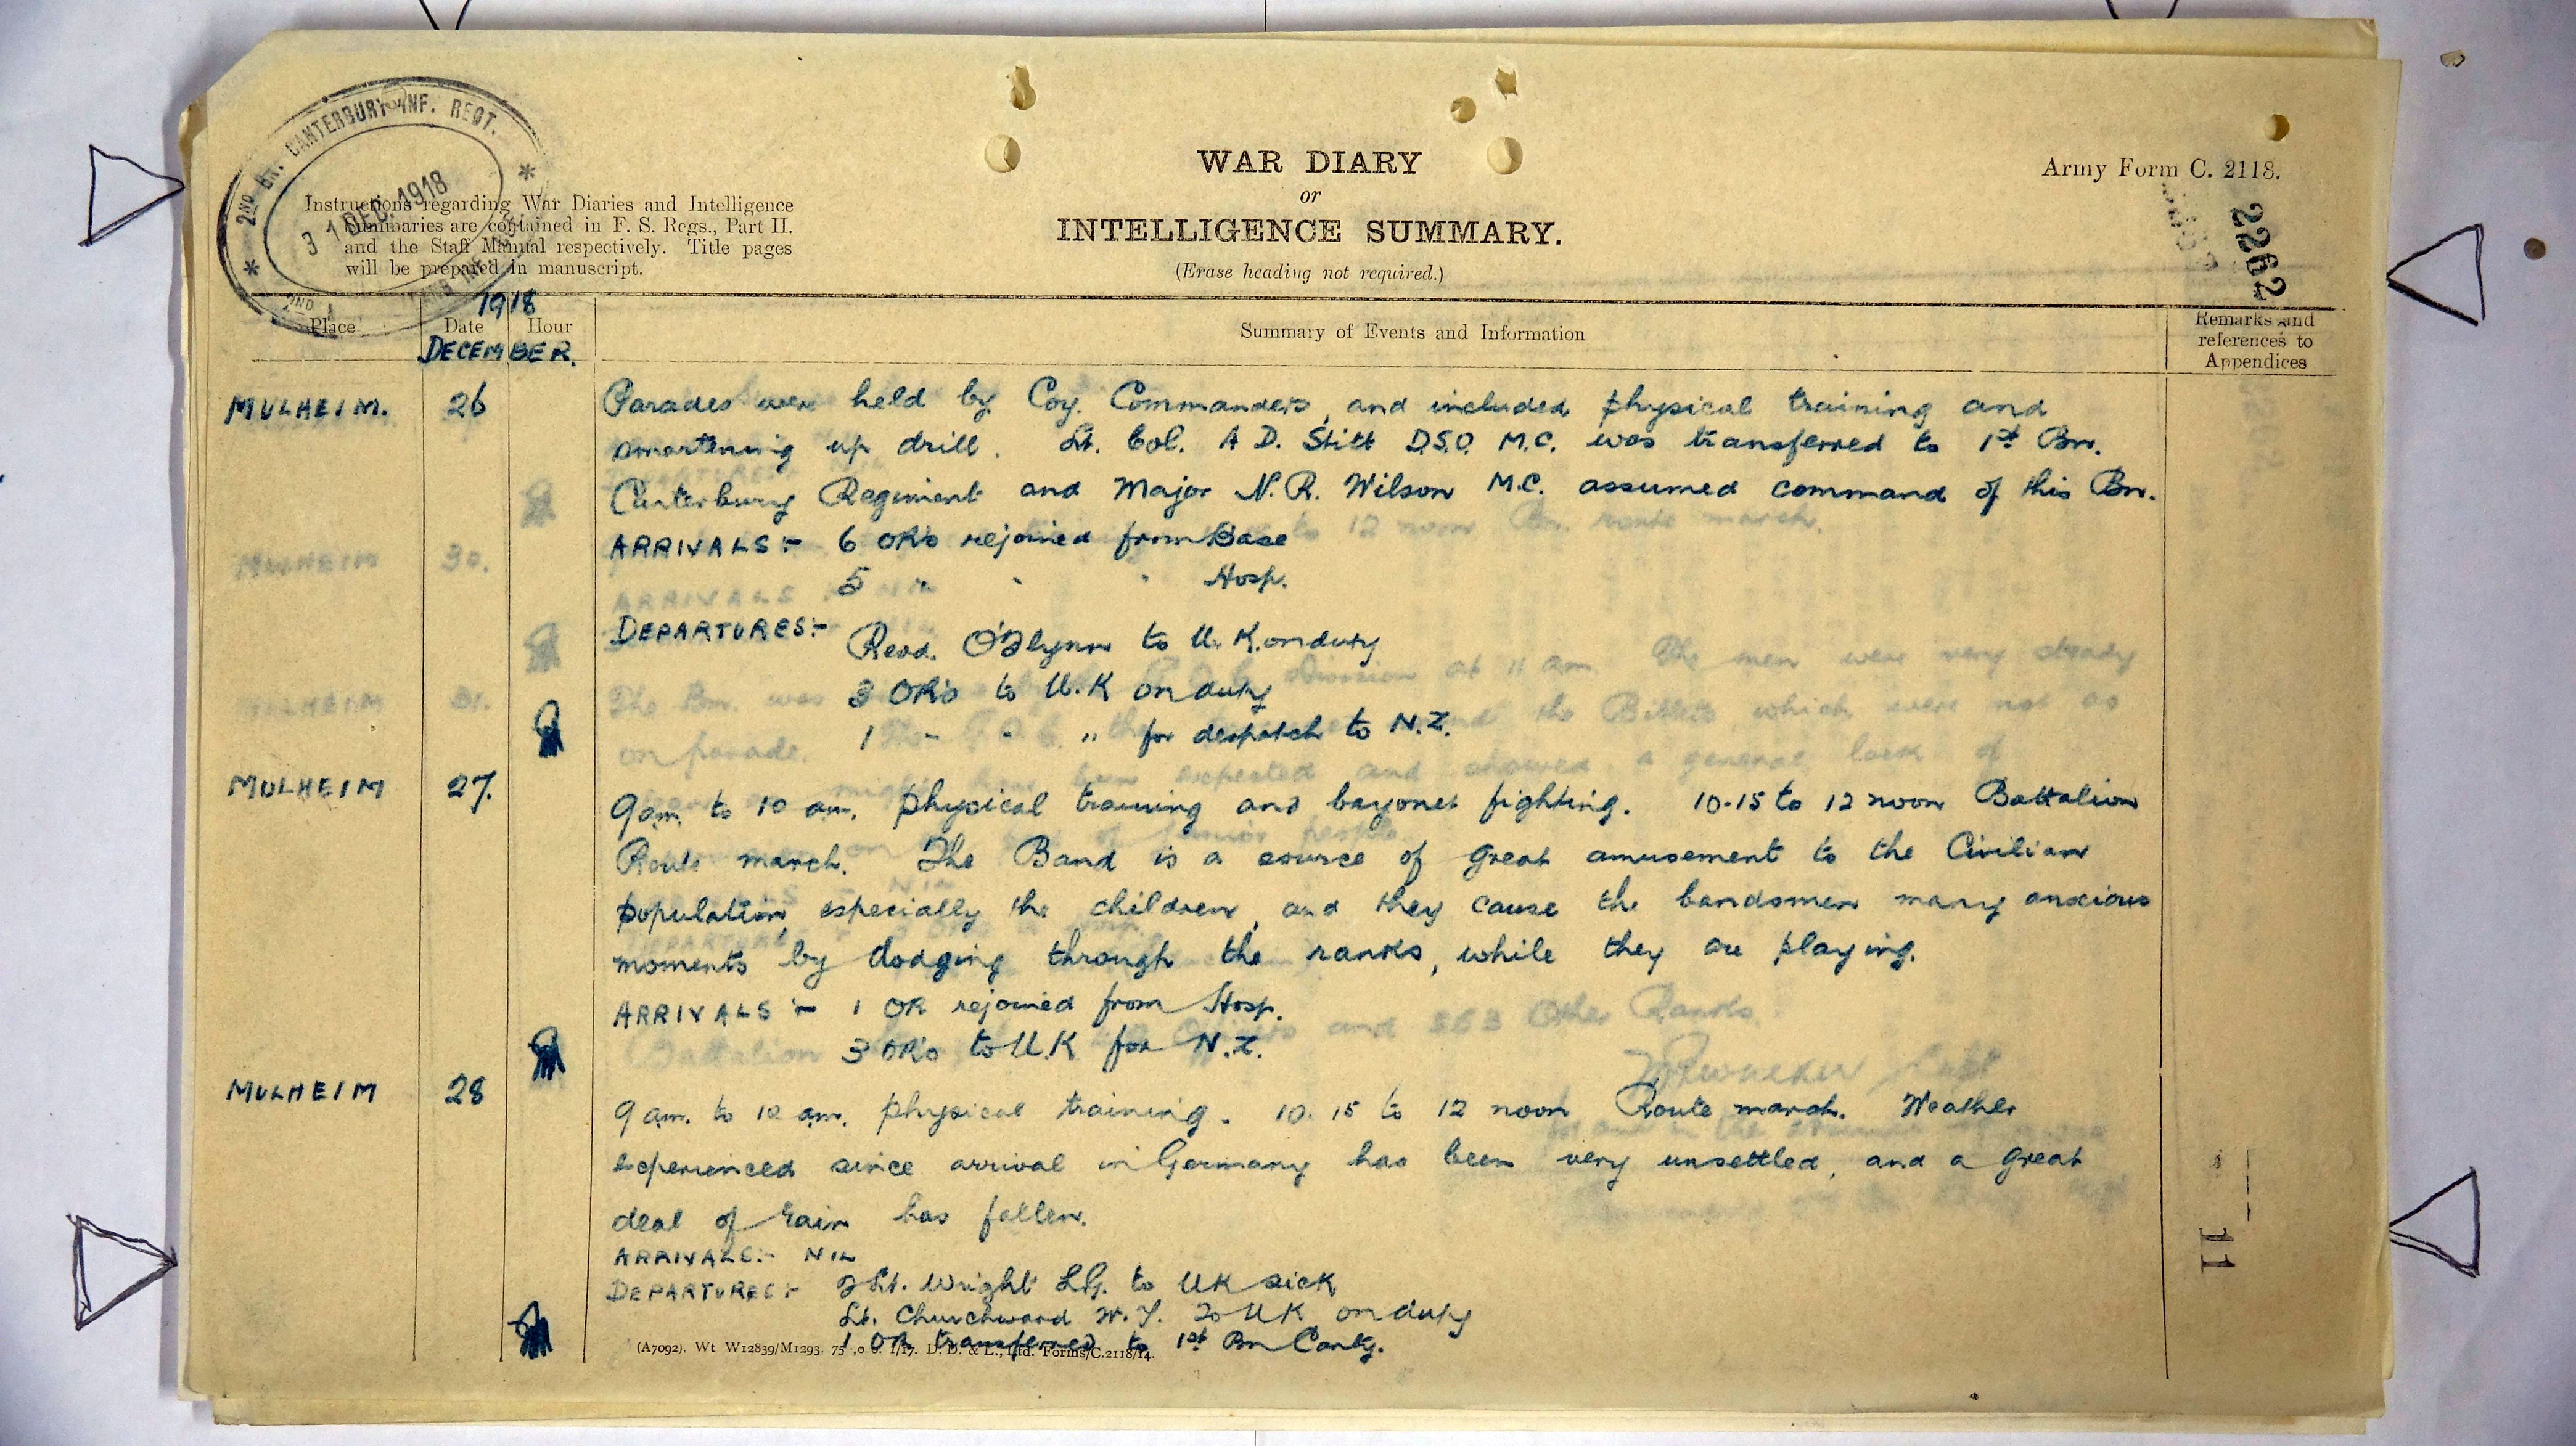 2ND BN. CANTERBURY INF. REGT.
31 DEC. 1918
Instructions regarding War Diaries and Intelligence
Summaries are contained in F. S. Regs., Part II.
and the Staff Manual respectively. Title pages
will be prepared in manuscript.
WAR DIARY
or
INTELLIGENCE SUMMARY.
(Erase heading not required.)
Army Form C. 2118.
2262
1918
Place Date Hour Summary of Events and Information Remarks and
references to
Appendices
DECEMBER.
MULHEIM. 26 Parades were held by Coy. Commanders, and included physical training and
smartening up drill. Lt. Col. A D. Stitt D.S.O. M.C. was transferred to 1st Bn.
Canterbury Regiment and Major N.R. Wilson M.C. assumed command of this Bn.
ARRIVALS:- 6 OR's rejoined from Base
5 " " Hosp.
DEPARTURES:- Revd. O'Flynn to U.K. on duty
3 OR's to U.K on duty
1 - - " for despatch to N.Z.
MULHEIM 27. 9am. to 10 am. physical training and bayonet fighting. 10-15 to 12 noon Battalion
Route march. The Band is a source of great amusement to the Civilian
population, especially the children, and they cause the bandsmen many anxious
moments by dodging through the ranks, while they are playing.
ARRIVALS:- 1 OR rejoined from Hosp.
3 OR's to U.K for N.Z.
MULHEIM 28 9 am. to 10 am. physical training. 10.15 to 12 noon Route march. Weather
experienced since arrival in Germany has been very unsettled, and a great
deal of rain has fallen.
ARRIVALS:- NIL
DEPARTURES:- 2Lt. Wright L.G. to UK sick
Lt. Churchward W.Y. To UK on duty
1 OR transferred to 1st Bn Cantg.
(A7092). Wt W12839/M1293. 75 ,0 0. 1/17. D. D. & L., Ltd. Forms/C.2118/14.
11